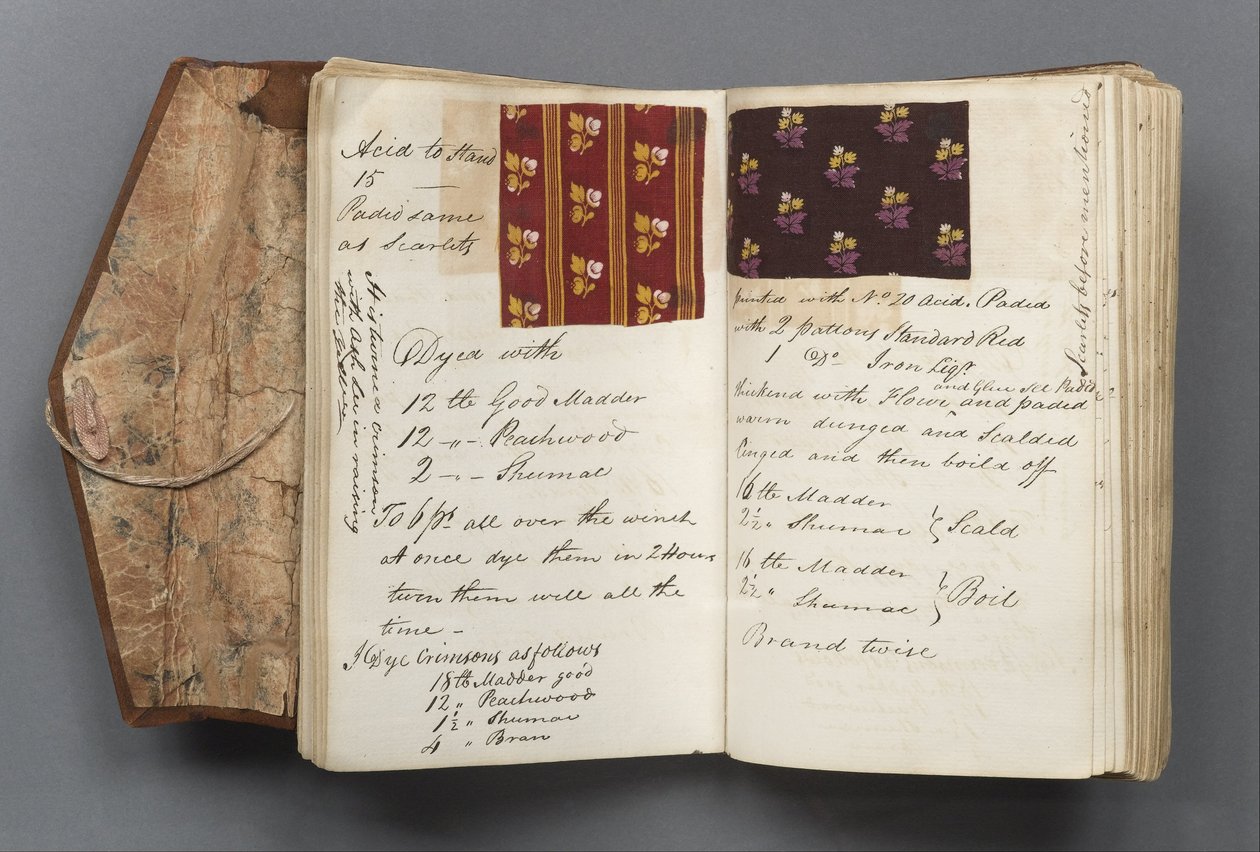 Acid to Stand
15 —
Padid same
as Scarlets
It is turned crimson
with Ash Lee in raising
the yellow
Dyed with
12 ℔ Good Madder
12 -„- Peachwood
2 -„- Shumac
To 6 ps all over the winch
at once dye them in 2 Hours
turn them well all the
time -
I Dye Crimsons as follows
18 ℔ Madder good
12 „ Peachwood
1½ „ Shumac
4 „ Bran
printed with No. 20 Acid. Padid
with 2 pattons Standard Red
1 Do Iron Liqr
and Glue See Padid
thickend with Flour ^ and padid
Scarlets before mentiond
warm dunged and Scalded
linged and then boild off
16 ℔ Madder
2½ „ Shumac } Scald
16 ℔ Madder
2½ „ Shumac } Boil
Brand twise